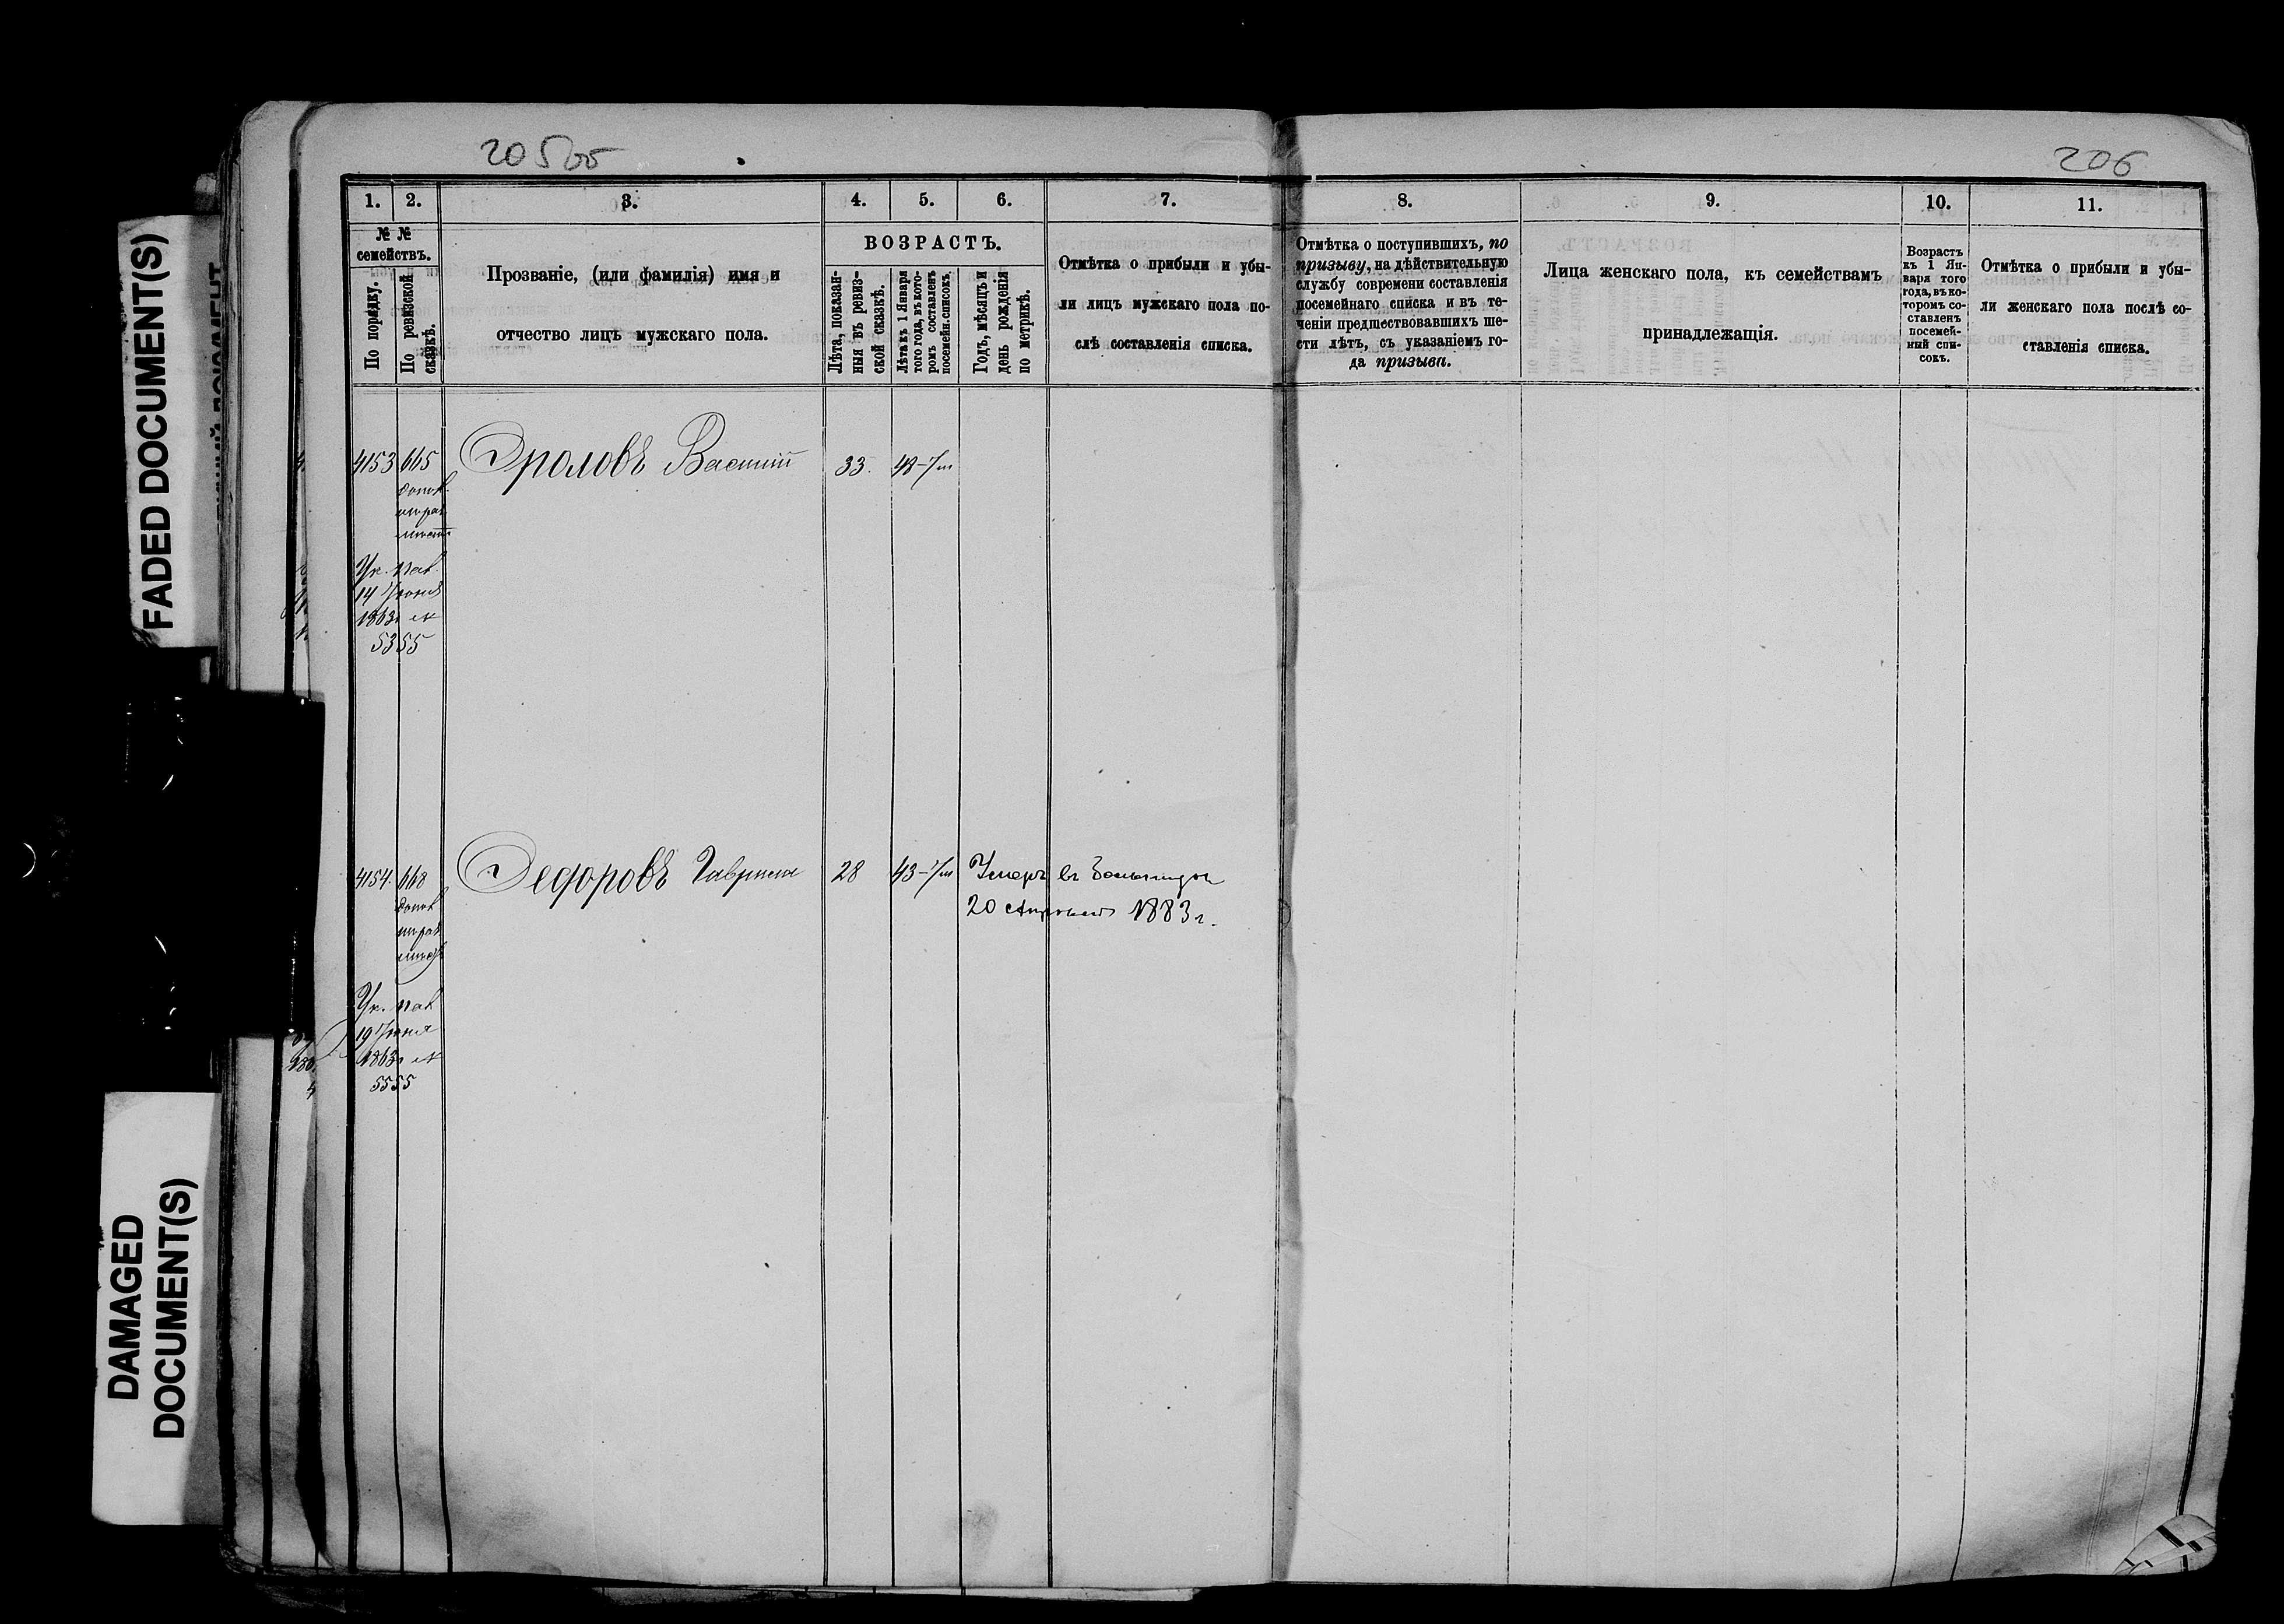 205об
206
1. 2. 3. 4. 5. 6. 7. 8. 9. 10. 11.
№ № семействъ.
По порядку.
По ревизской сказкѣ.
Прозваніе, (или фамилія) имя и
отчество лицъ мужскаго пола.
ВОЗРАСТЪ.
Лѣта, показан-
ныя въ ревиз-
ской сказкѣ.
Лѣта къ 1 Января
того года, въ кото-
ромъ составленъ
посемейн. списокъ.
Годъ, мѣсяцъ и
день рожденія
по метрикѣ.
Отмѣтка о прибыли и убы-
ли лицъ мужскаго пола по-
слѣ составленія списка.
Отмѣтка о поступившихъ, по
призыву, на дѣйствительную
службу современи составленія
посемейнаго списка и въ те-
ченіи предшествовавшихъ ше-
сти лѣтъ, съ указаніемъ го-
да призыва.
Лица женскаго пола, къ семействамъ
принадлежащія.
Возрастъ
къ 1 Ян-
варя того
года, въ ко-
торомъ со-
ставленъ
посемей-
ный спи-
сокъ.
Отмѣтка о прибыли и убы-
ли женскаго пола послѣ со-
ставленія списка.
4153 665 Фроловъ Василій 33. 48
Ук. пал.
14 Іюня
1863г №
5355
4154. 668 Федоровъ Гавріилъ 28 43 Умеръ въ
20 Апрѣля 1883 г.
Ук. пал
19 Іюня
1863г №
5555
FADED DOCUMENT(S)
DAMAGED
DOCUMENT(S)